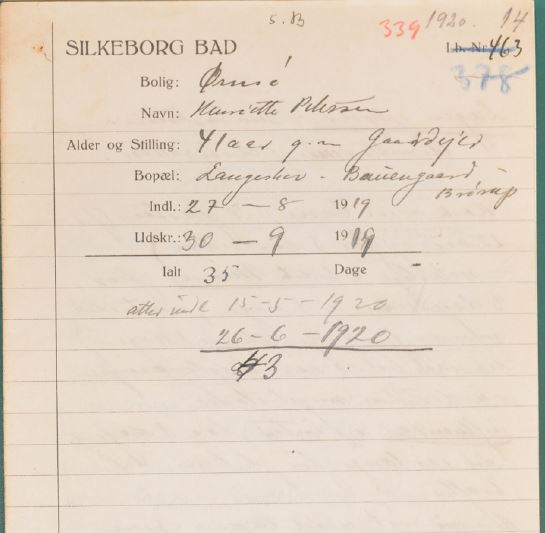 5. B 339 1920. 14
SILKEBORG BAD Lb. Nr. 463
378
Bolig: Ørnsö
Navn: Henriette Petersen
Alder og Stilling: 41 aar g.m. Gaardejer
Bopæl: Langeskov - Bauengaard
Brørup
Indl.: 27 - 8 1919
Udskr.: 30 - 9 1919
Ialt 35 Dage -
atter indl 15 - 5 - 1920
26 - 6 - 1920
43